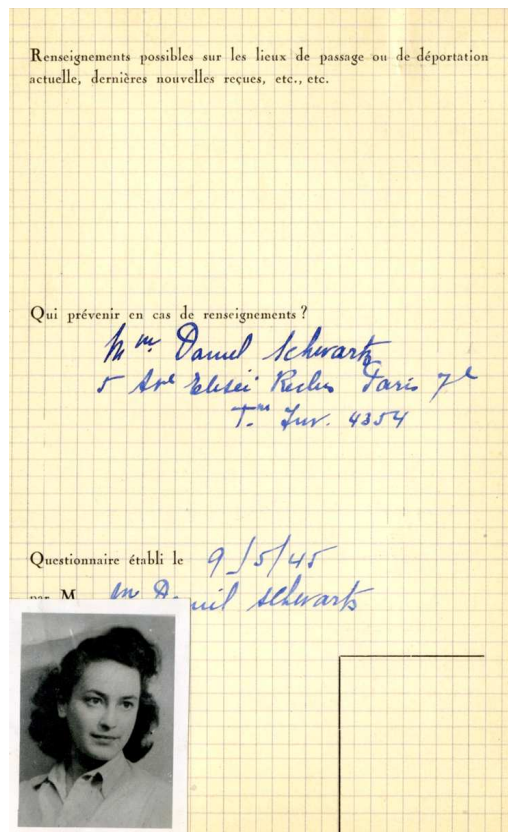 Renseignements possibles sur les lieux de passage ou de déportation
actuelle, dernières nouvelles reçues, etc., etc.
Qui prévenir en cas de renseignements ?
Mme Daniel Schwartz
5 Ave Elisée Reclus Paris 7e
Inv. 4354
Questionnaire établi le 9/5/45
par M Daniel Schwartz